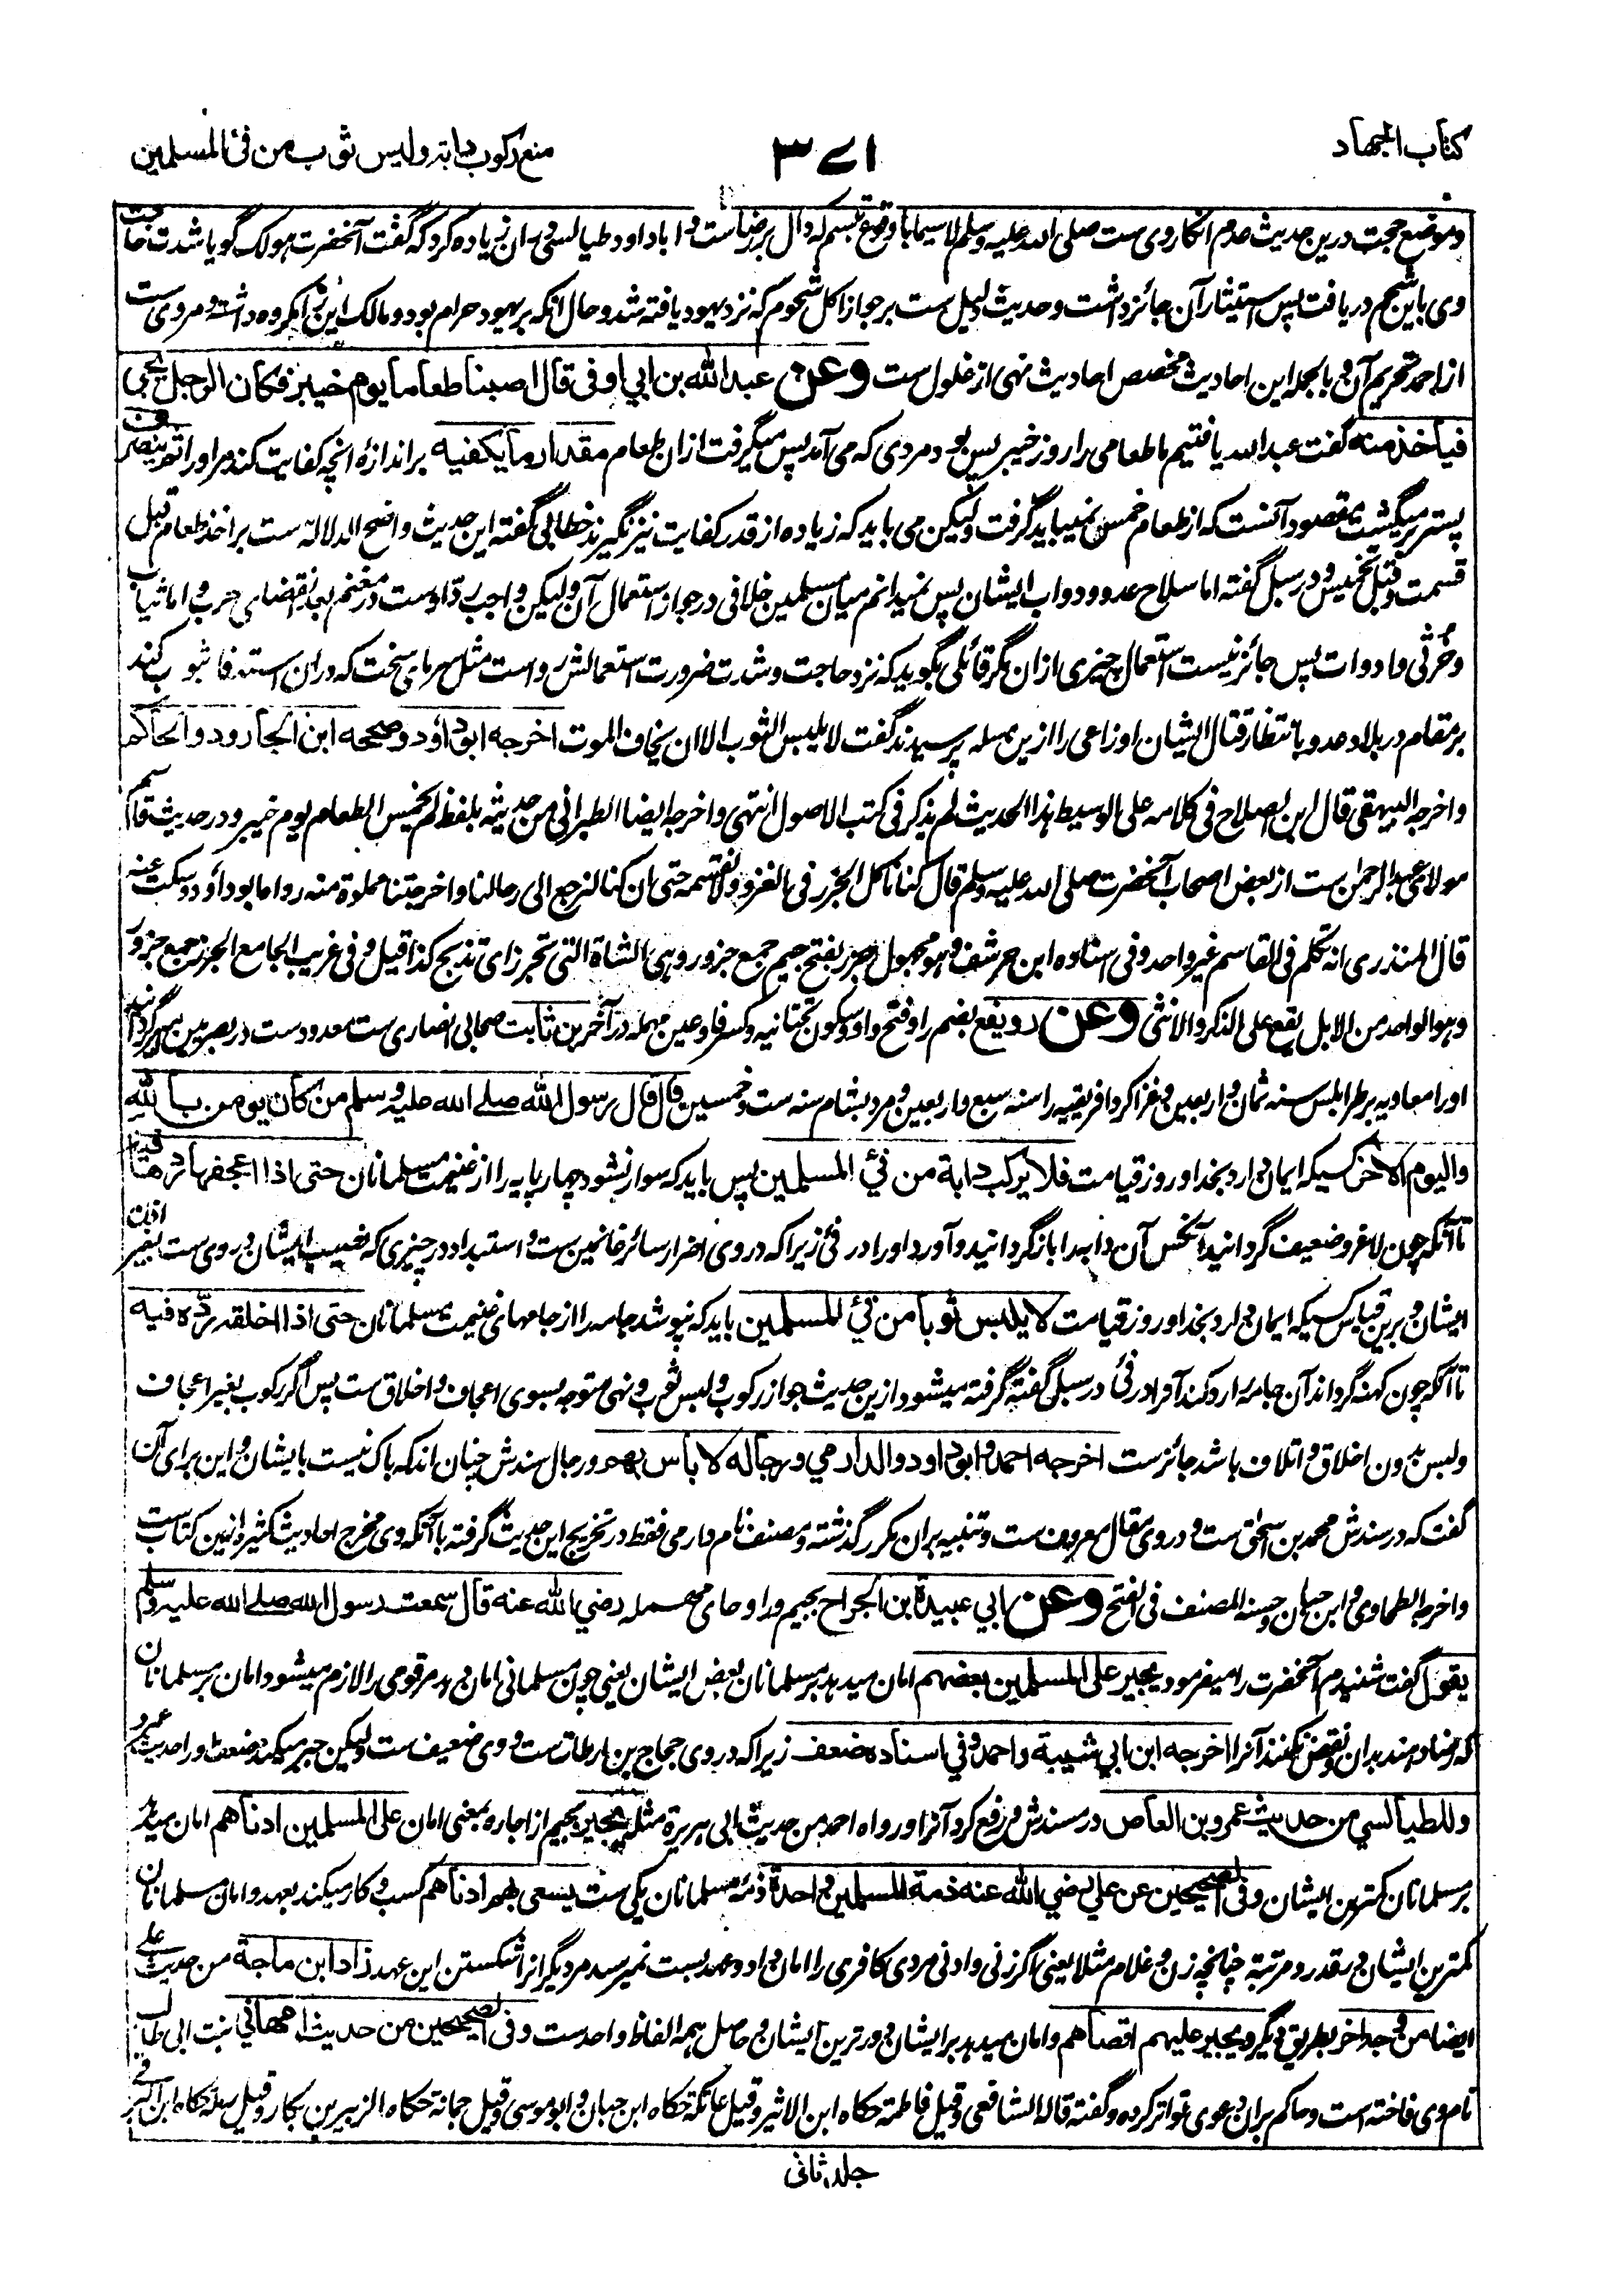 کتاب الجهاد
۳۷۱
منع رکوب دابة ولبس ثوب من فئ المسلمین
وموضع حجت درین حدیث عدم انکار وی ست صلی الله علیه وسلم لاسیما با وقوع تبسم که دال بر رضاست و ابا داود طیالسی در آن زیاده کرد که گفت آنحضرت هولک گویا شدت حاجت
وی باین شحم دریافت پس استیثار آن جائز داشت وحدیث دلیل ست بر جواز اکل شحوم که نزد یهود یافته شد وحال آنکه بر یهود حرام بود ومالک این را مکروه داشته ومروی ست
از احمد تحریم آن و بالجمله این احادیث مخصص احادیث نهی از غلول ست وعن عبد الله بن ابی اوفی قال اصبنا طعاما یوم خیبر فکان الرجل یجی
فیأخذ منه گفت عبدالله یافتیم ما طعامی را روز خیبر پس بود مردی که می آمد پس میگرفت ازان طعام مقدار ما یکفیه بر اندازهٔ آنچه کفایت کند مر او را ثم ینصرف
پستر برمیگشت مقصود آنست که از طعام خمس نمیباید گرفت ولیکن می باید که زیاده از قدر کفایت نیز نگیرند خطابی گفته این حدیث واضح الدلالة ست بر اخذ طعام قبل
قسمت وقبل تخمیس ودر سبل گفته اما سلاح عدو ودواب ایشان پس نمیدانم میان مسلمین خلافی در جواز استعمال آن ولیکن واجب رد اوست در مغنم بعد انقضای حرب واما ثیاب
وخرثی وادوات پس جائز نیست استعمال چیزی ازان مگر قائلی بگوید که نزد حاجت وشدت ضرورت استعمالش رواست مثل سرمای سخت که دران استدفا بثوب کند
بر مقام در بلاد عدو بانتظار قتال ایشان اوزاعی را ازین مسله پرسیدند گفت لا یلبس الثوب الا ان یخاف الموت اخرجه ابو داؤد وصححه ابن الجارود والحاکم
واخرجه البیهقی قال ابن الصلاح فی کلامه علی الوسیط هذا الحدیث لم یذکر فی کتب الاصول انتهی واخرجه ایضا الطبرانی من حدیثه بلفظ لم یخمس الطعام یوم خیبر ودر حدیث قاسم
مولای عبدالرحمن ست از بعض اصحاب آنحضرت صلی الله علیه وسلم قال کنا ناکل الجزر فی الغزو ولا نقسمه حتی ان کنا لنرجع الی رحالنا واخرجتنا مملوة منه رواه ابو داؤد وسکت عنه
قال المنذری انه تکلم فی القاسم غیر واحد وفی اسناده ابن حرشف وهو مجهول وجزر بفتح جیم جمع جزور وهی الشاة التی تجزر ای تذبح کذا قیل وفی غریب الجامع الجزر جمع جزور
وهو الواحد من الابل یقع علی الذکر والانثی وعن رویفع بضم را وفتح واو وسکون تحتانیه وکسر فا وعین مهمله در آخر بن ثابت صحابی انصاری ست معدود ست در بصریین امیر گردانید
اورا معاویه بر طرابلس سنه ثمان واربعین و غزا کرد افریقیه را سنه سبع واربعین ومرد بشام سنه ست وخمسین قال قال رسول الله صلے الله علیه وسلم من کان یومن بالله
والیوم الاخر کسیکه ایمان دارد بخدا وروز قیامت فلا یرکب دابة من فئ المسلمین پس باید که سوار نشود چهارپایه را از غنیمت مسلمانان حتی اذا اعجفها ردها فیه
تا آنکه چون لاغر وضعیف گردانید آنکس آن دابه را بازگردانید وآورد او را در فئ زیرا که در وی اضرار سائر غانمین ست و استبداد در چیزی که نصیب ایشان در وی ست بغیر اذن
ایشان و برین قیاس کسیکه ایمان دارد بخدا وروز قیامت لا یلبس ثوبا من فئ المسلمین باید که نپوشد جامه را از جامهای غنیمت مسلمانان حتی اذا اخلقه رده فیه
تا آنکه چون کهنه گرداند آن جامه را رد کند آنرا در فئ در سبل گفته گرفته میشود ازین حدیث جواز رکوب ولبس ثوب ونهی متوجه بسوی اعجاف واخلاق ست پس اگر رکوب بغیر اعجاف
ولبس بدون اخلاق واتلاف باشد جائزست اخرجه احمد وابو داود والدارمی ورجاله لا باس بهم ورجال سندش چنان اند که باک نیست بایشان واین برای آن
گفت که در سندش محمد بن اسحاق ست ودر وی مقال معروف ست وتنبیه بران مکرر گذشته ومصنف نام دارمی فقط در تخریج این حدیث گرفته با آنکه وی مخرج احادیث کثیره ازین کتاب ست
واخرجه الطحاوی وابن حبان وحسنه المصنف فی الفتح وعن ابی عبیدة بن الجراح بجیم ورا وحای مهمله رضی الله عنه قال سمعت رسول الله صلے الله علیه وسلم
یقول گفت شنیدم آنحضرت را میفرمود یجیر علی المسلمین بعضهم امان میدهد بر مسلمانان بعض ایشان یعنی چون مسلمانی امان دهد مر قومی را لازم میشود امان بر مسلمانان
که رضا دهند بدان ونقض نکنند آنرا اخرجه ابن ابی شیبة واحمد وفی اسناده ضعف زیرا که در وی حجاج بن ارطاة ست و وی ضعیف ست ولیکن جبر میکند ضعف او را حدیث عمرو
وللطیالسی من حدیث عمرو بن العاص در مسندش ورفع کرد آنرا ورواه احمد من حدیث ابی هریرة مثله یجیر بجیم از اجاره بمعنی امان علی المسلمین ادناهم امان میدهد
بر مسلمانان کمترین ایشان وفی الصحیحین عن علی رضی الله عنه ذمة المسلمین واحدة ذمهٔ مسلمانان یکی ست یسعی بها ادناهم کسب وکار میکند بعهد وامان مسلمانان
کمترین ایشان در قدر ومرتبه چنانچه زن وغلام مثلا یعنی اگر زنی وادنی مردی کافری را امان داد وعهد بست نمیرسد مر دیگرانرا شکستن این عهد زاد ابن ماجة من حدیث علی
ایضا من وجه اخر بطریق دیگر ویجیر علیهم اقصاهم وامان میدهد بر ایشان دورترین ایشان وحاصل همه الفاظ واحد ست وفی الصحیحین من حدیث ام هانی بنت ابی طالب
نام وی فاخته است وحاکم بران دعوی تواتر کرده وگفته قاله الشافعی وقیل فاطمة حکاه ابن الاثیر وقیل عاتکة حکاه ابن حبان وابو موسی وقیل جمانة حکاه الزبیر بن بکار وقیل رملة حکاه ابن البرقی
جلد ثانی